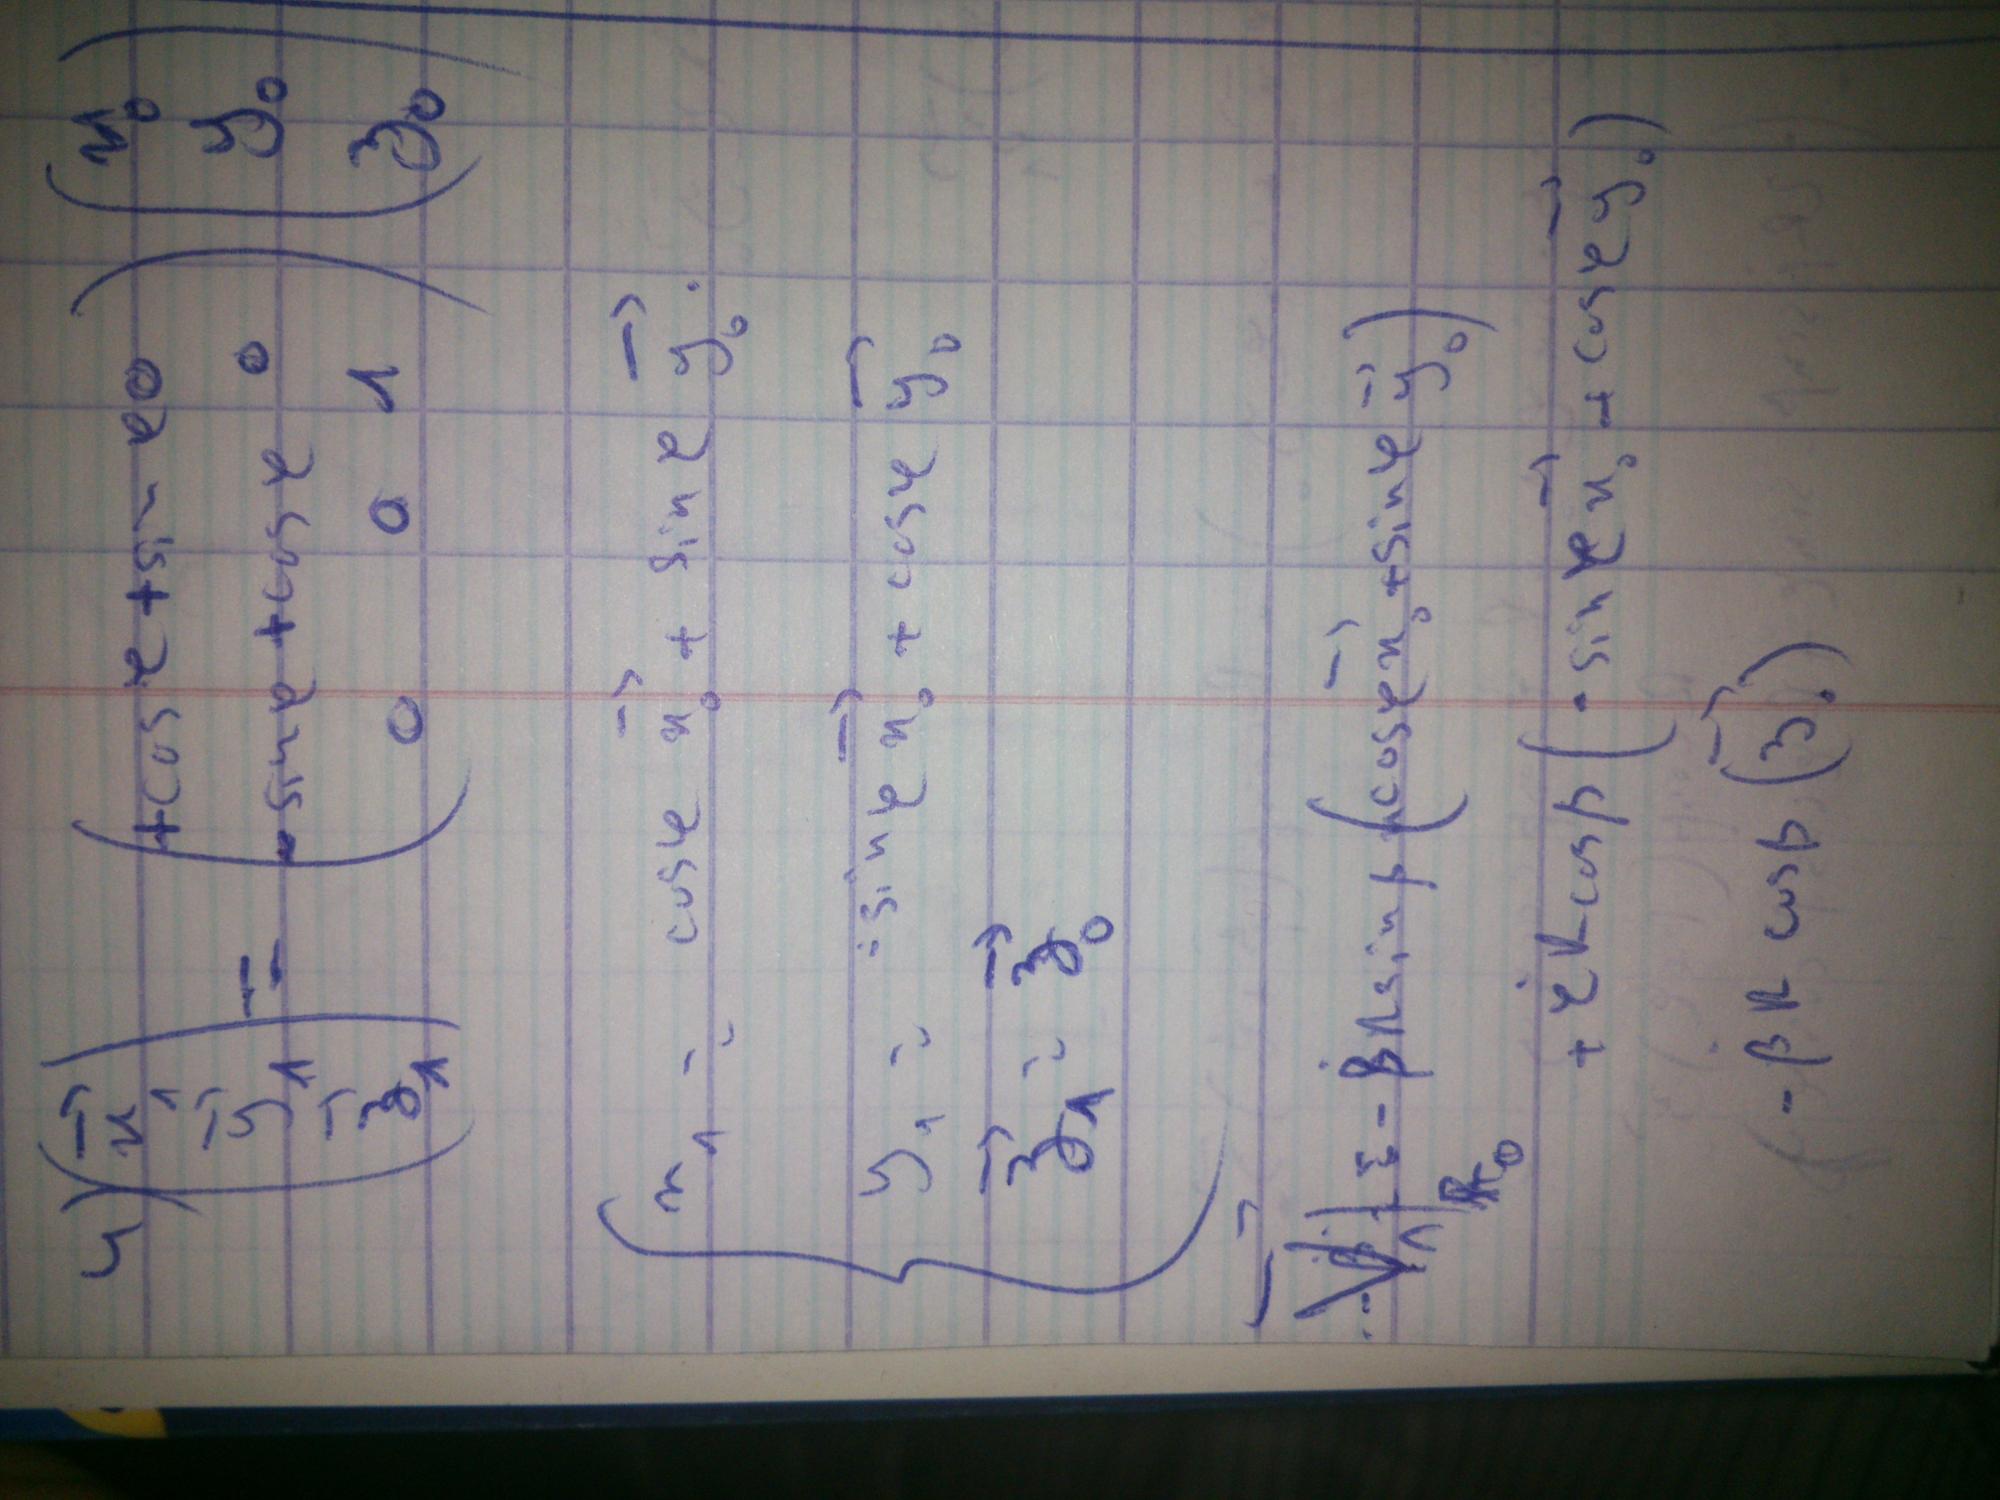 4) (x⃗₁ y⃗₁ z⃗₁) = (+cos φ +sin φ 0 / -sin φ +cos φ 0 / 0 0 1) (x₀ y₀ z₀)
x₁ = cos φ x⃗₀ + sin φ y⃗₀.
y₁ = -sin φ x⃗₀ + cos φ y⃗₀
z⃗₁ = z⃗₀
/R₀ = - β̇ R sin β (cos φ x⃗₀ + sin φ y⃗₀)
+ φ̇ R cos β (- sin φ x⃗₀ + cos φ y⃗₀)
- β̇ R cos β (z⃗₀)